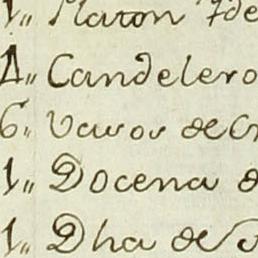 1,, Platon
4,, Candelero
6,, Vasos de
1,, Docena
1,, Dha de